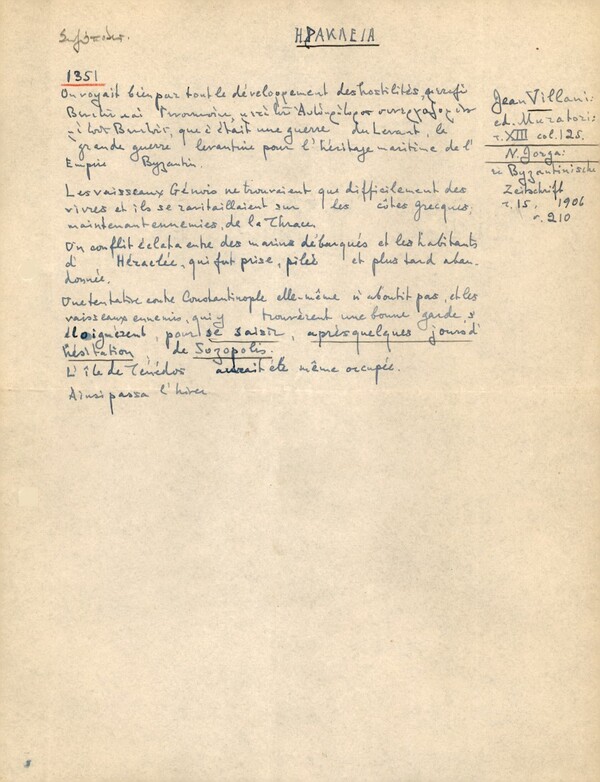 ΗΡΑΚΛΕΙΑ
1351
On voyait bien par tout le développement des hostilités, μεταξύ
Βενετών καὶ Γενουατών,
que c'était une guerre du Levant, la
grande guerre levantine pour l'héritage maritime de l'
Empire Byzantin.
Les vaisseaux Génois ne trouvaient que difficilement des
vivres et ils se ravitaillaient sur les côtes grecques,
maintenant ennemies, de la Thrace.
Un conflit éclata entre des marins débarqués et les habitants
d' Héraclée, qui fut prise, pilée et plus tard aban-
donnée.
Une tentative contre Constantinople elle-même n'aboutit pas, et les
vaisseaux ennemis, qui y trouvèrent une bonne garde s'
éloignèsent, pour se saisir, après quelques jours d'
hésitation, de Sozopolis.
L'île de Ténédos aurait été même occupée.
Ainsi passa l'hiver
Jean Villani:
ed. Muratori:
τ. XIII col. 125.
N. Jorga:
Byzantinische
Zeitschrift
τ. 15, 1906
σ. 210